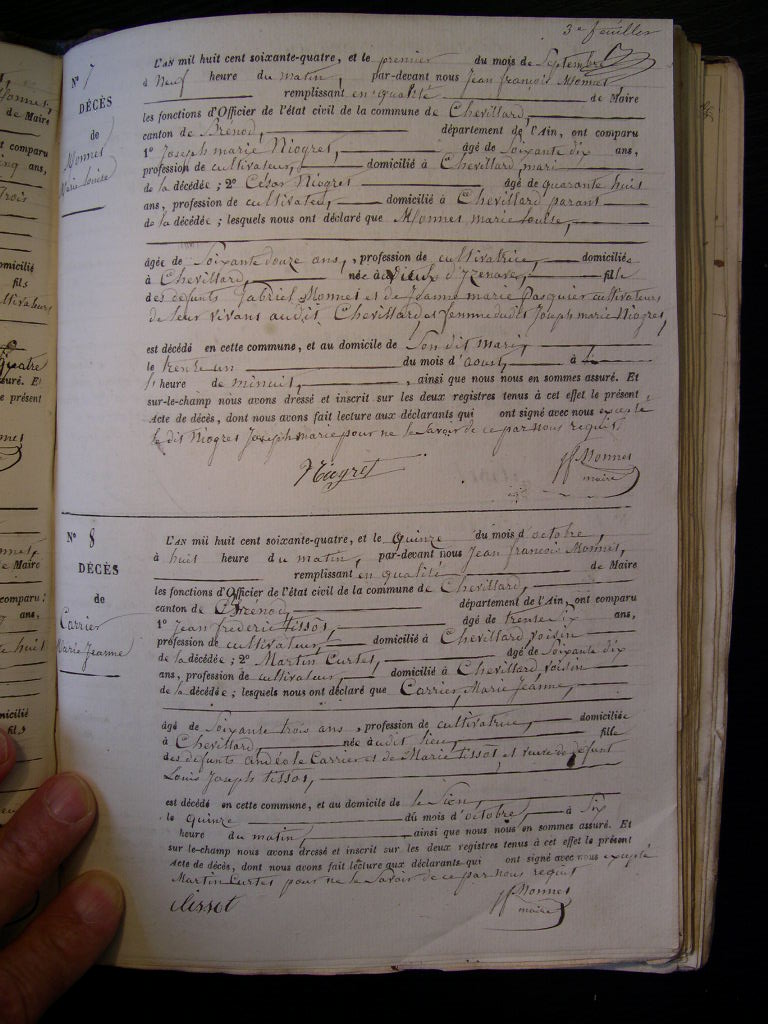 3e feuillet
N° 7
DÉCÈS
de
Monnet
Marie Louise
L'AN mil huit cent soixante-quatre, et le premier du mois de Septembre
à Neuf heure du matin, par-devant nous Jean françois Monnet
remplissant en qualité de Maire
les fonctions d'Officier de l'état civil de la commune de Chevillard,
canton de Brénod, département de l'Ain, ont comparu
1° Joseph marie Niogret, âgé de Soixante dix ans,
profession de cultivateur, domicilié à Chevillard, mari
de la décédée ; 2° César Niogret âgé de quarante huit
ans, profession de cultivateur, domicilié à Chevillard parant
de la décédée ; lesquels nous ont déclaré que Monnet marie Louise,
âgée de Soixante douze ans, profession de cultivatrice, domiciliée
à Chevillard, née à d'Izenave, fille
des défunts Gabriel Monnet et de Jeanne marie Pasquier cultivateurs
de leur vivans audit Chevillard et femme dudit Joseph marie Niogret,
est décédé en cette commune, et au domicile de Son dit mari,
le trente un du mois d'aoust, à
l' heure de minuit, ainsi que nous nous en sommes assuré. Et
sur-le-champ nous avons dressé et inscrit sur les deux registres tenus à cet effet le présent
Acte de décès, dont nous avons fait lecture aux déclarants qui ont signé avec nous excepté
le dit Niogret Joseph marie pour ne le Savoir de ce par nous requit.
Niogret
Monnet
maire
N° 8
DÉCÈS
de
Carrier
Marie Jeanne
L'AN mil huit cent soixante-quatre, et le Quinze du mois d'octobre,
à huit heure du matin, par-devant nous Jean françois Monnet,
remplissant en qualité de Maire
les fonctions d'Officier de l'état civil de la commune de Chevillard,
canton de Brénod, département de l'Ain, ont comparu
1° Jean frederic tissot, âgé de trente Six ans,
profession de cultivateur, domicilié à Chevillard voisin
de la décédée ; 2° Martin Curtet, âgé de Soixante dix
ans, profession de cultivateur, domicilié à Chevillard, voisin
de la décédée ; lesquels nous ont déclaré que Carrier, Marie Jeanne,
âgé de Soixante trois ans, profession de cultivatrice, domiciliée
à Chevillard, née à udit lieu, fille
des défunts andéole Carrier et de Marie tissot, et veuve de défunt
Louis Joseph tissot,
est décédé en cette commune, et au domicile de le Sien,
le Quinze du mois d'octobre, à Six
heure du matin, ainsi que nous nous en sommes assuré. Et
sur le-champ nous avons dressé et inscrit sur les deux registres tenus à cet effet le présent
Acte de décès, dont nous avons fait lecture aux déclarants qui ont signé avec nous excepté
Martin Curtet pour ne le Savoir de ce par nous requit
tissot
Monnet
maire